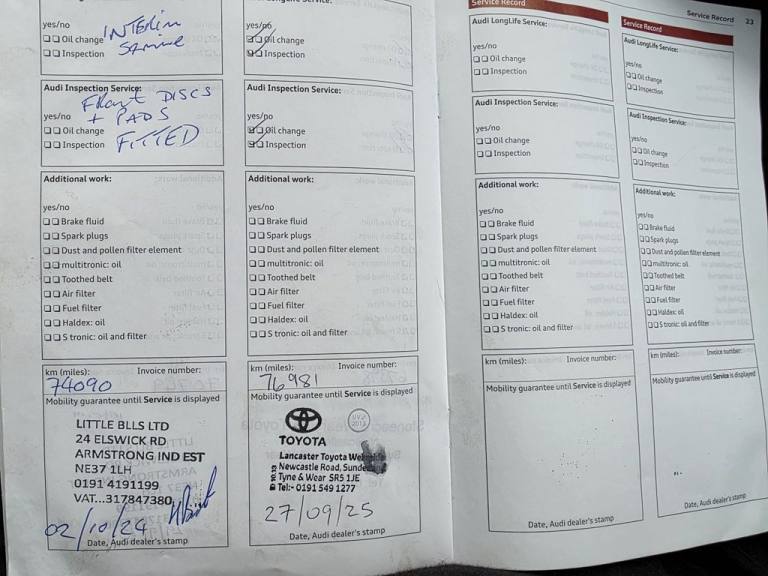 yes/no
Oil change
Inspection
INTERIM
SERVICE
Audi Inspection Service:
yes/no
Oil change
Inspection
FRONT DISCS
+ PADS
FITTED
Additional work:
yes/no
Brake fluid
Spark plugs
Dust and pollen filter element
multitronic: oil
Toothed belt
Air filter
Fuel filter
Haldex: oil
S tronic: oil and filter
km (miles): Invoice number:
74090
Mobility guarantee until Service is displayed
LITTLE BLLS LTD
24 ELSWICK RD
ARMSTRONG IND EST
NE37 1LH
0191 4191199
VAT...317847380
02/10/24
Date, Audi dealer's stamp
yes/no
Oil change
Inspection
Audi Inspection Service:
yes/no
Oil change
Inspection
Additional work:
yes/no
Brake fluid
Spark plugs
Dust and pollen filter element
multitronic: oil
Toothed belt
Air filter
Fuel filter
Haldex: oil
S tronic: oil and filter
km (miles): Invoice number:
76981
Mobility guarantee until Service is displayed
TOYOTA
Lancaster Toyota
Newcastle Road,
Tyne & Wear SR5 1JE
Tel:- 0191 549 1277
27/09/25
Date, Audi dealer's stamp
Service Record
Audi LongLife Service:
yes/no
Oil change
Inspection
Audi Inspection Service:
yes/no
Oil change
Inspection
Additional work:
yes/no
Brake fluid
Spark plugs
Dust and pollen filter element
multitronic: oil
Toothed belt
Air filter
Fuel filter
Haldex: oil
S tronic: oil and filter
km (miles): Invoice number:
Mobility guarantee until Service is displayed
Date, Audi dealer's stamp
Service Record 23
Service Record
Audi LongLife Service:
yes/no
Oil change
Inspection
Audi Inspection Service:
yes/no
Oil change
Inspection
Additional work:
yes/no
Brake fluid
Spark plugs
Dust and pollen filter element
multitronic: oil
Toothed belt
Air filter
Fuel filter
Haldex: oil
S tronic: oil and filter
km (miles): Invoice number:
Mobility guarantee until Service is displayed
Date, Audi dealer's stamp